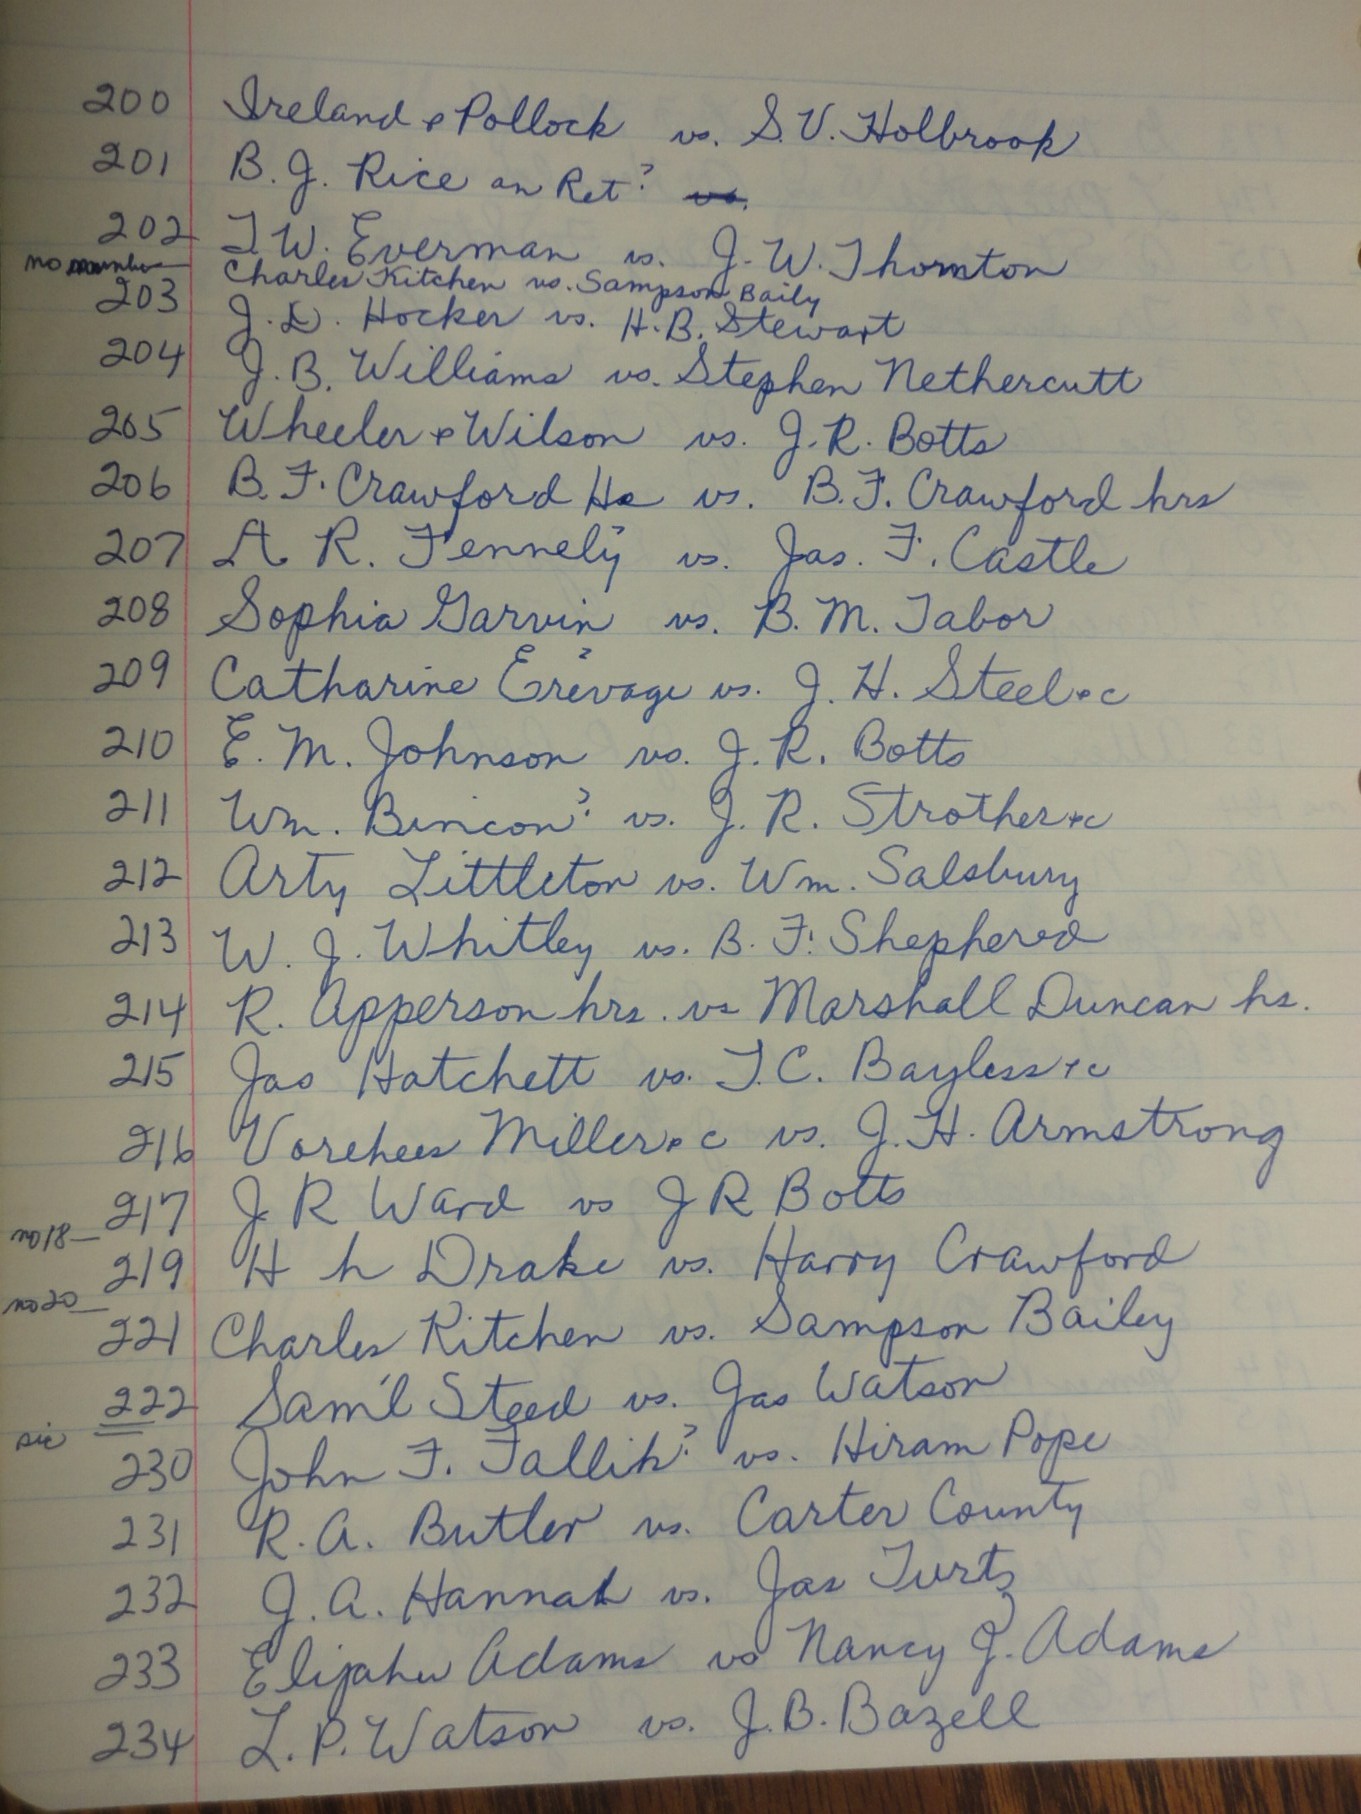 200 Ireland & Pollock vs. S.V. Holbrook
201 B.J. Rice on Ret?
202 T.W. Everman vs. J.W. Thornton
no number Charles Kitchen vs. Sampson Baily
203 J.D. Hocker vs. H.B. Stewart
204 J.B. Williams vs. Stephen Nethercutt
205 Wheeler & Wilson vs. J.R. Botts
206 B.F. Crawford vs. B.F. Crawford hrs
207 A R. Fennely? vs. Jas. F. Castle
208 Sophia Garvin vs. B.M. Tabor
209 Catharine Erevage? vs. J.H. Steel &c
210 E.M. Johnson vs. J.R. Botts
211 Wm. Bincon? vs. J.R. Strother &c
212 Arty Littleton vs. Wm. Salsbury
213 W.J. Whitley vs. B.F. Shepherd
214 R. Apperson hrs. vs Marshall Duncan hs.
215 Jas Hatchett vs. T.C. Bayless &c
216 Vorehees Miller &c vs. J.H. Armstrong
217 J R Ward vs J R Botts
no 18
219 H h Drake vs. Harry Crawford
no 20
221 Charles Kitchen vs. Sampson Bailey
222 Sam'l Steed vs. Jas Watson
sic
230 John F. Fallih? vs. Hiram Pope
231 R.A. Butler vs. Carter County
232 J.A. Hannah vs. Jas Turtz
233 Elijah Adams vs Nancy J. Adams
234 L.P. Watson vs. J.B. Bazell